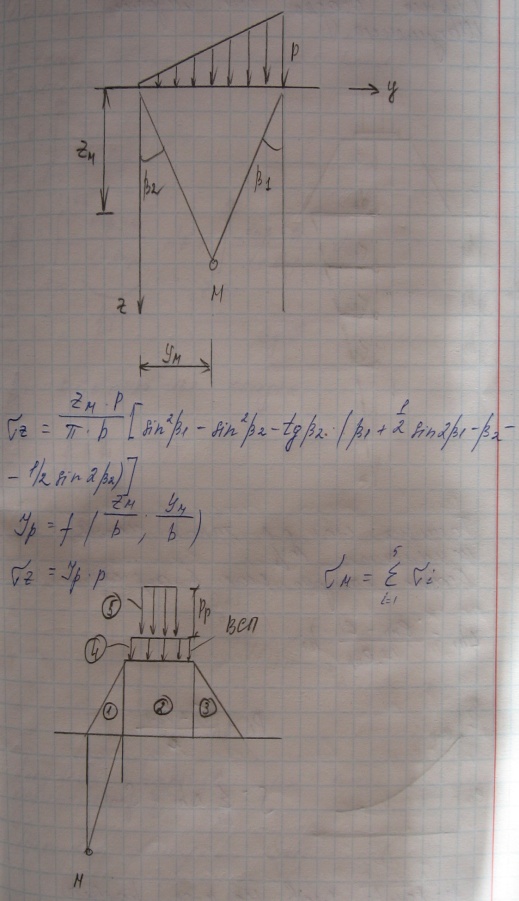 p
y
zм
β2
β1
M
z
yм
σz = zм · p / π · b [ sin²β1 − sin²β2 − tgβ2 · ( β1 + 1/2 sin2β1 − β2 −
− 1/2 sin 2β2 ) ]
Jp = f ( zм / b ; yм / b )
σz = Jp · p
σм = Σ σi
5
i=1
5
Pp
ВСП
4
1
2
3
M